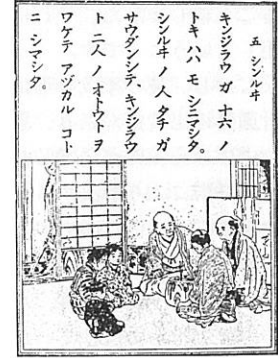 五 シンルヰ
キンジラウ ガ 十六 ノ
トキ ハハ モ シニマシタ。
シンルヰ ノ 人 タチ ガ
サウダンシテ、キンジラウ
ト 二人 ノ オトウト ヲ
ワケテ アヅカル コト
ニ シマシタ。